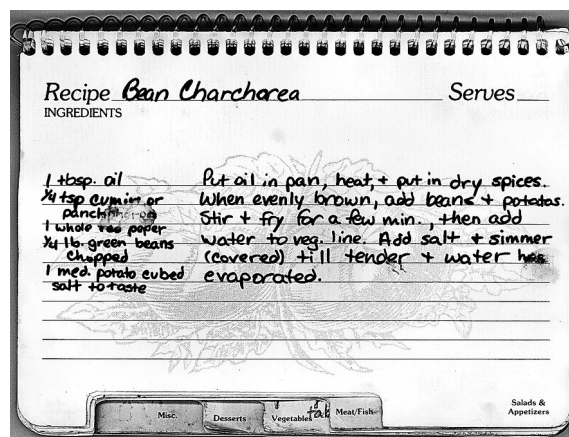 Recipe Bean Charchorea Serves
INGREDIENTS
1 tbsp. oil
1/4 tsp cumin or
panchphoron
1 whole red peper
1/4 lb. green beans
chopped
1 med. potato cubed
salt to taste
Put oil in pan, heat, + put in dry spices.
When evenly brown, add beans + potatos.
Stir + fry for a few min., then add
water to veg. line. Add salt + simmer
(covered) till tender + water has
evaporated.
Misc.
Desserts
Vegetables
Meat/Fish
Salads &
Appetizers